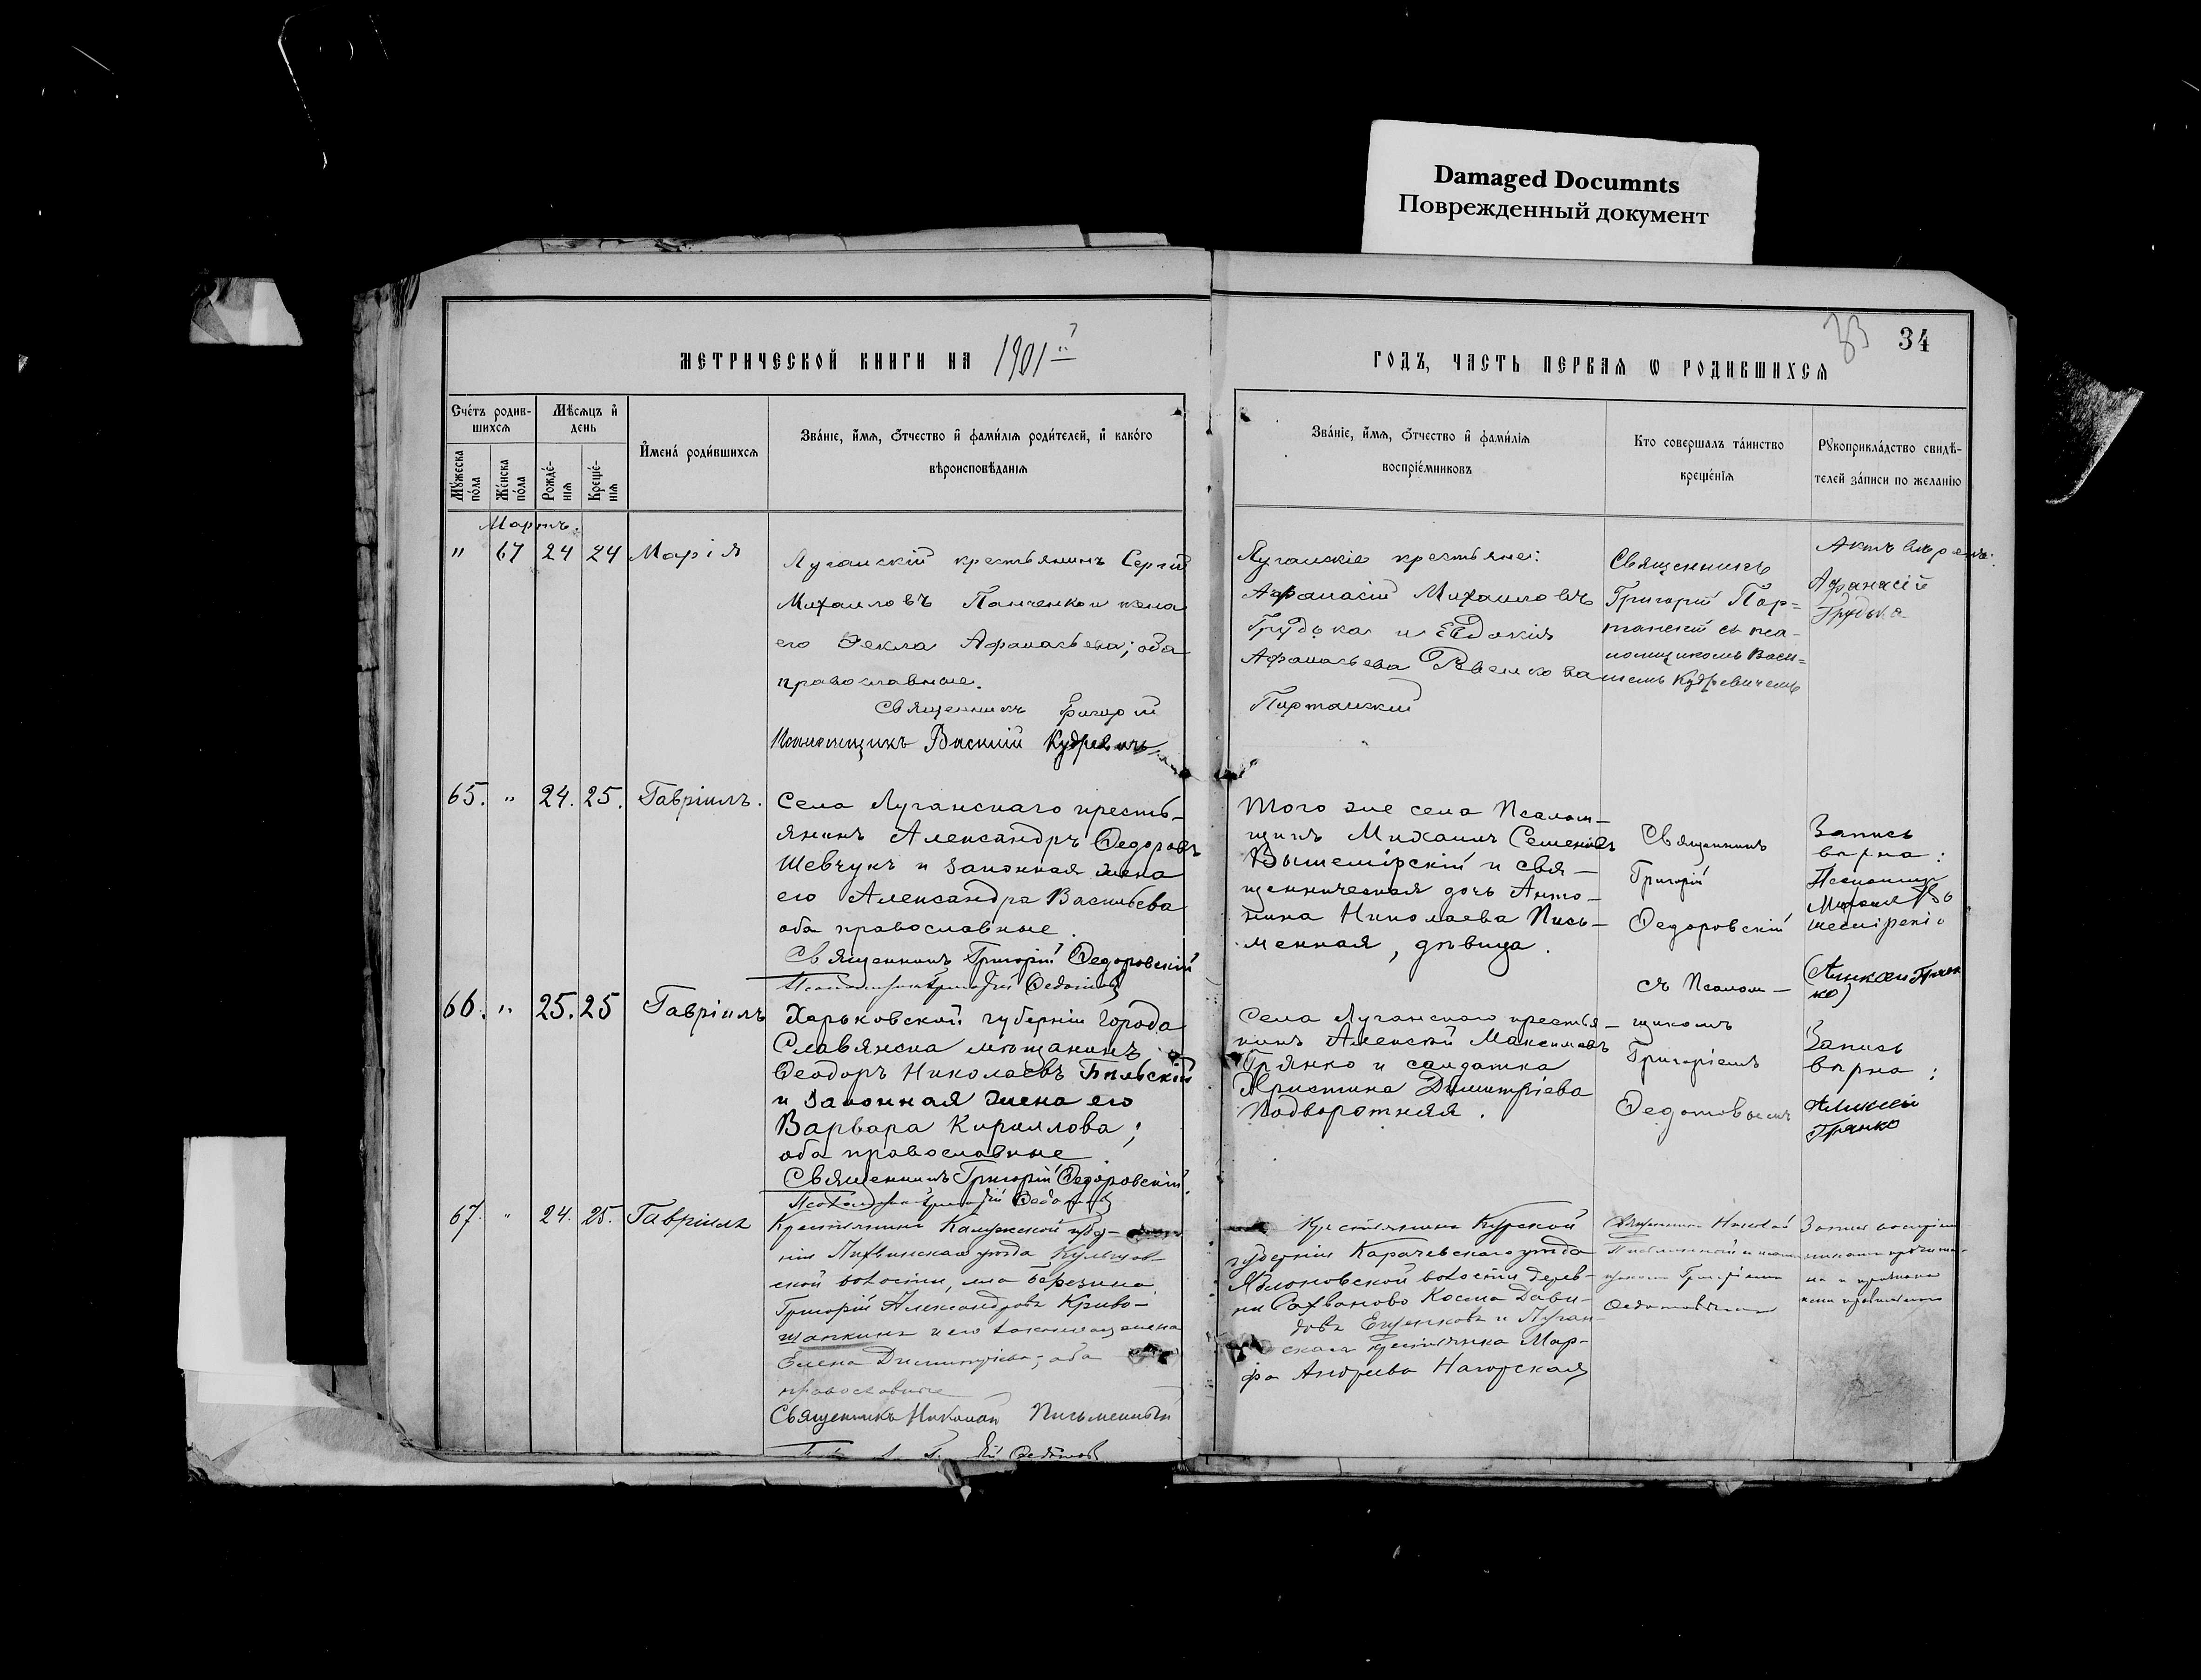 Damaged Documnts
Поврежденный документ
33 34
МЕТРИЧЕСКОЙ КНИГИ НА 1901 й
ГОДЪ, ЧАСТЬ ПЕРВАЯ Ѡ РОДИВШИХСЯ
Сче́тъ родив-
шихсѧ
Мѣсѧцъ и҆
день
Мꙋ́жеска
по́ла
Же́нска
по́ла
Рожде́-
нїѧ
Креще́-
нїѧ
И҆мена́ роди́вшихсѧ
Зва́нїе, и҆́мѧ, ѻ҆́тчество и҆ фами́лїѧ роди́телей, и҆ како́гѡ
вѣроисповѣ́данїѧ
Зва́нїе, и҆́мѧ, ѻ҆́тчество и҆ фами́лїѧ
воспрїе́мниковъ
Кто соверша́лъ та́инство
креще́нїѧ
Рꙋкоприкла́дство свидѣ́-
телей за́писи по жела́нїю
Мартъ.
" 67 24 24 Марія
Луганскій крестьянинъ Сергій
Михаиловъ Панченко и жена
его Ѳекла Афанасьева; оба
православные.
Священникъ Григорій
Псаломщикъ Василій Кудревичъ
Луганскіе крестьяне:
Афанасій Михаиловъ
Грудька и Евдокія
Афанасьева
Партанскій
Священникъ
Григорій Пар=
танскій съ пса-
ломщикомъ Васи=
ліемъ Кудревичемъ
Актъ вѣренъ:
Афанасій
Грудька
65. " 24. 25. Гавріилъ.
Села Луганскаго кресть-
янинъ Александръ Ѳедоровъ
Шевчукъ и законная жена
его Александра Васильева
оба православные.
Священникъ Григорій Ѳедоровскій
Псаломщикъ Григорій Ѳедотовъ
Того же села Псалом-
щикъ Михаилъ Семеновъ
Вышемірскій и свя-
щенническая дочь Анто-
нина Николаева Пись-
менная, дѣвица.
Священникъ
Григорій
Ѳедоровскій
съ Псалом-
щикомъ
Григоріемъ
Ѳедотовымъ
Запись
вѣрна:
Псаломщ
Михаилъ Вы
шемірскій
(Алексѣй Грян
ко)
66. " 25. 25 Гавріилъ
Харьковской губерніи города
Славянска мѣщанинъ
Ѳеодоръ Николаевъ Бѣльскій
и законная жена его
Варвара Кириллова;
оба православные
Священникъ Григорій Ѳедоровскій.
Псаломщикъ Григорій Ѳедотовъ
Села Луганскаго крестья-
нинъ Алексѣй Максимовъ
Грянко и солдатка
Христина Димитріева
Подворотняя.
Запись
вѣрна:
Алексѣй
Грянко
67. " 24. 25. Гавріилъ
Крестьянинъ Калужской губер-
ніи Лихвинскаго уѣзда
ской волости, села Березина
Григорій Александровъ Криво-
щапкинъ и его законная жена
Елена Димитріева; оба
православные
Священникъ Николай Письменный
Ѳедотовъ
Крестьянинъ Курской
губерніи Карачевскаго уѣзда
Яблоновской волости дерев-
ни Козма Дави-
довъ Ещенковъ и Луган-
ская крестьянка Мар-
фа Андреева Нагорская
Священникъ Николай
Письменный
Григоріемъ
Ѳедотовымъ
Запись